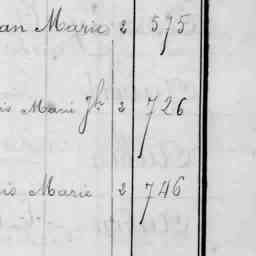 an Marie 2 575
is Marie Jh 2 726
is Marie 2 746